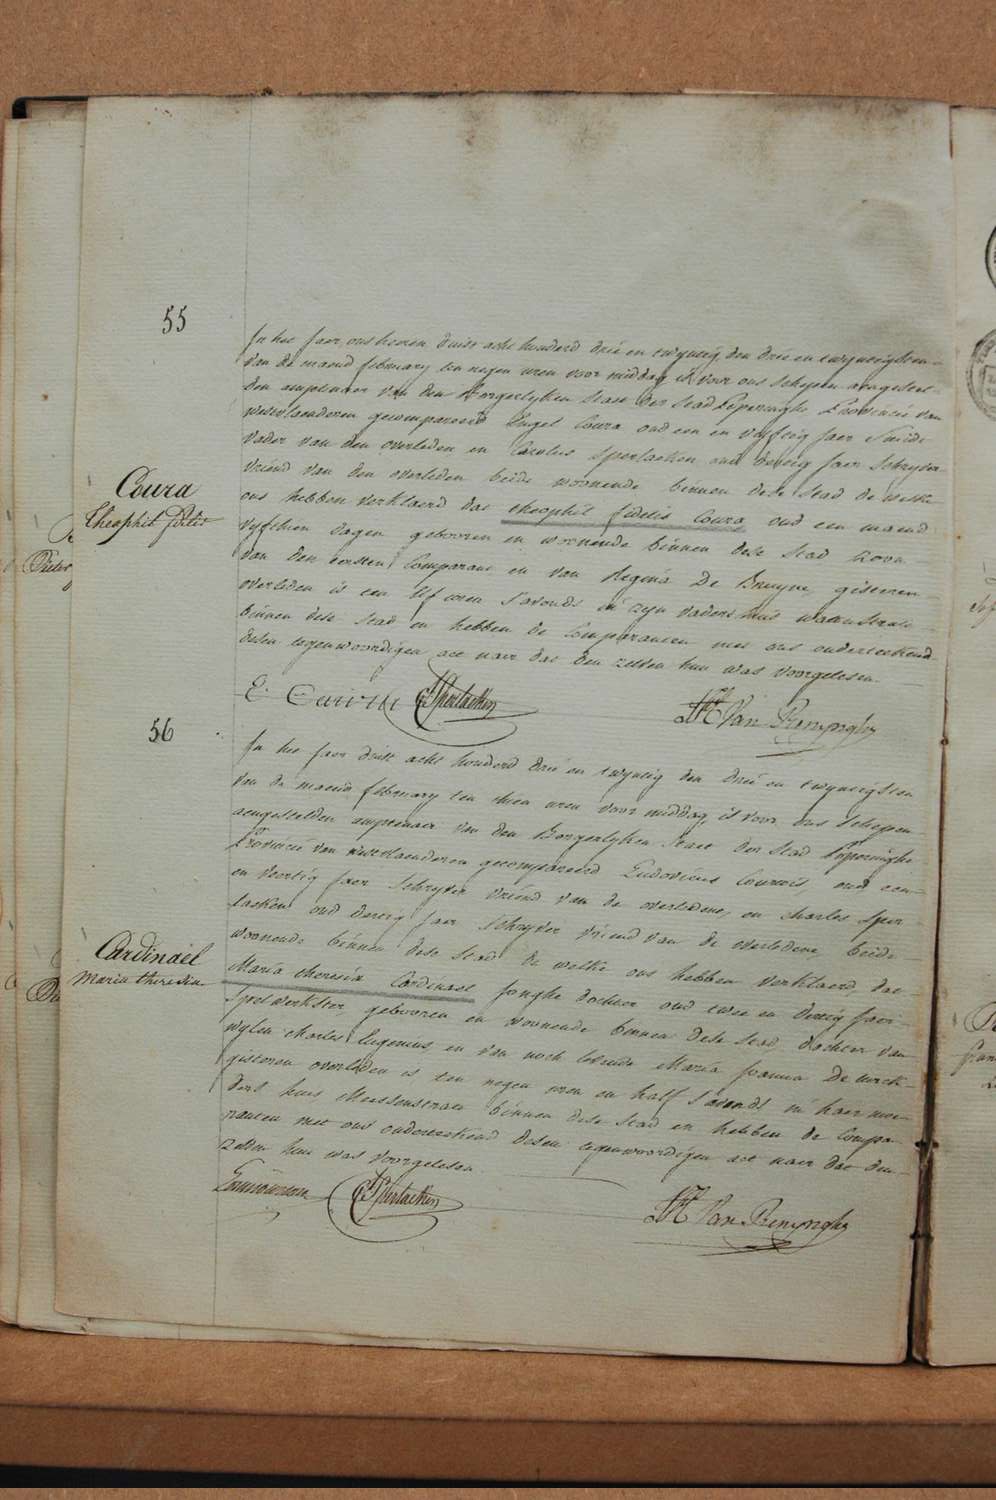 55
In het Jaer ons heeren duist acht honderd drie en twyntig den drie en twyntigsten
van de maend february ten negen uren voor middag is voor ons schepen aengestel-
den amptenaer van den Borgerlyken staet der stad Poperinghe Provincie van
westvlaenderen gecompareerd Engel Coura oud een en vyftig Jaer Smidt
vader van den overleden en Carolus Sperlaeken oud dertig Jaer schryver
vriend van den overleden beide woonende binnen dese stad de welke
ons hebben verklaerd dat theophil fidelis Coura oud een maend
vyfthien dagen gebooren en woonende binnen dese stad zoon
van den eersten Comparant en van Regina De Bruyne gisteren
overleden is ten elf uren s'avonds in zyn vaders huis waterstraete
binnen dese stad en hebben de Comparanten met ons onderteekend
desen tegenwoordigen act naer dat den zelven hun was voorgelesen.
Coura
theophil fidelis
C Sperlaeken
Van Renynghe
56
In het Jaer duist acht honderd drie en twyntig den drie en twyntigsten
van de maend february ten thien uren voor middag, is voor ons schepen
aengestelden amptenaer van den Borgerlyken staet der stad Poperinghe
Provincie van westvlaenderen gecompareerd Ludovicus oud een
en veertig Jaer schryver vriend van de overledene, en Charles Sper
laeken oud dertig Jaer schryver vriend van de overledene beide
woonende binnen dese stad de welke ons hebben verklaerd, dat
Maria theresia Cardinael Jonghe dochter oud twee en dertig Jaer
Spelwerkster, gebooren en woonende binnen dese stad, dochter van
wylen Charles Eugenius, en van noch levende Maria Joanna De
gisteren overleden is ten negen uren en half s'avonds in haer moe
ders huis Meessenstraet binnen dese stad en hebben de Compa
ranten met ons onderteekend desen tegenwoordigen act naer dat den
zelven hun was voorgelesen
Cardinael
Maria theresia
C Sperlaeken
Van Renynghe